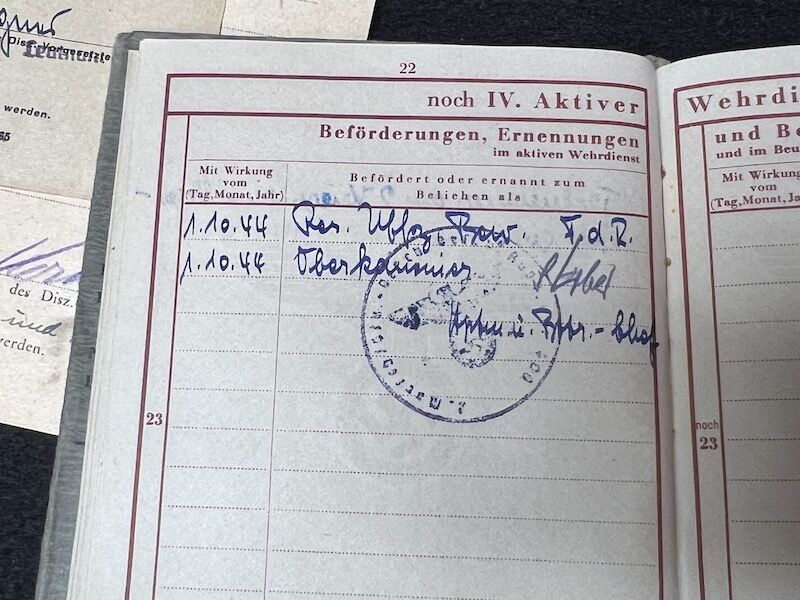 Disz. Vorgesetzte
Leutnant
werden.
des Disz.
und
werden.
22
noch IV. Aktiver
Beförderungen, Ernennungen
im aktiven Wehrdienst
Mit Wirkung
vom
(Tag, Monat, Jahr)
Befördert oder ernannt zum
Beliehen als
1.10.44 Res. Uffz. Bew. F.d.R.
1.10.44 Oberkanonier
Hptm. u. Bttr.-Chef
23
Wehrdi
und Be
und im Beu
Mit Wirkung
vom
(Tag, Monat, Ja
noch
23